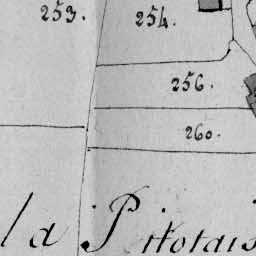 253. 254.
256.
260.
la Pitolais